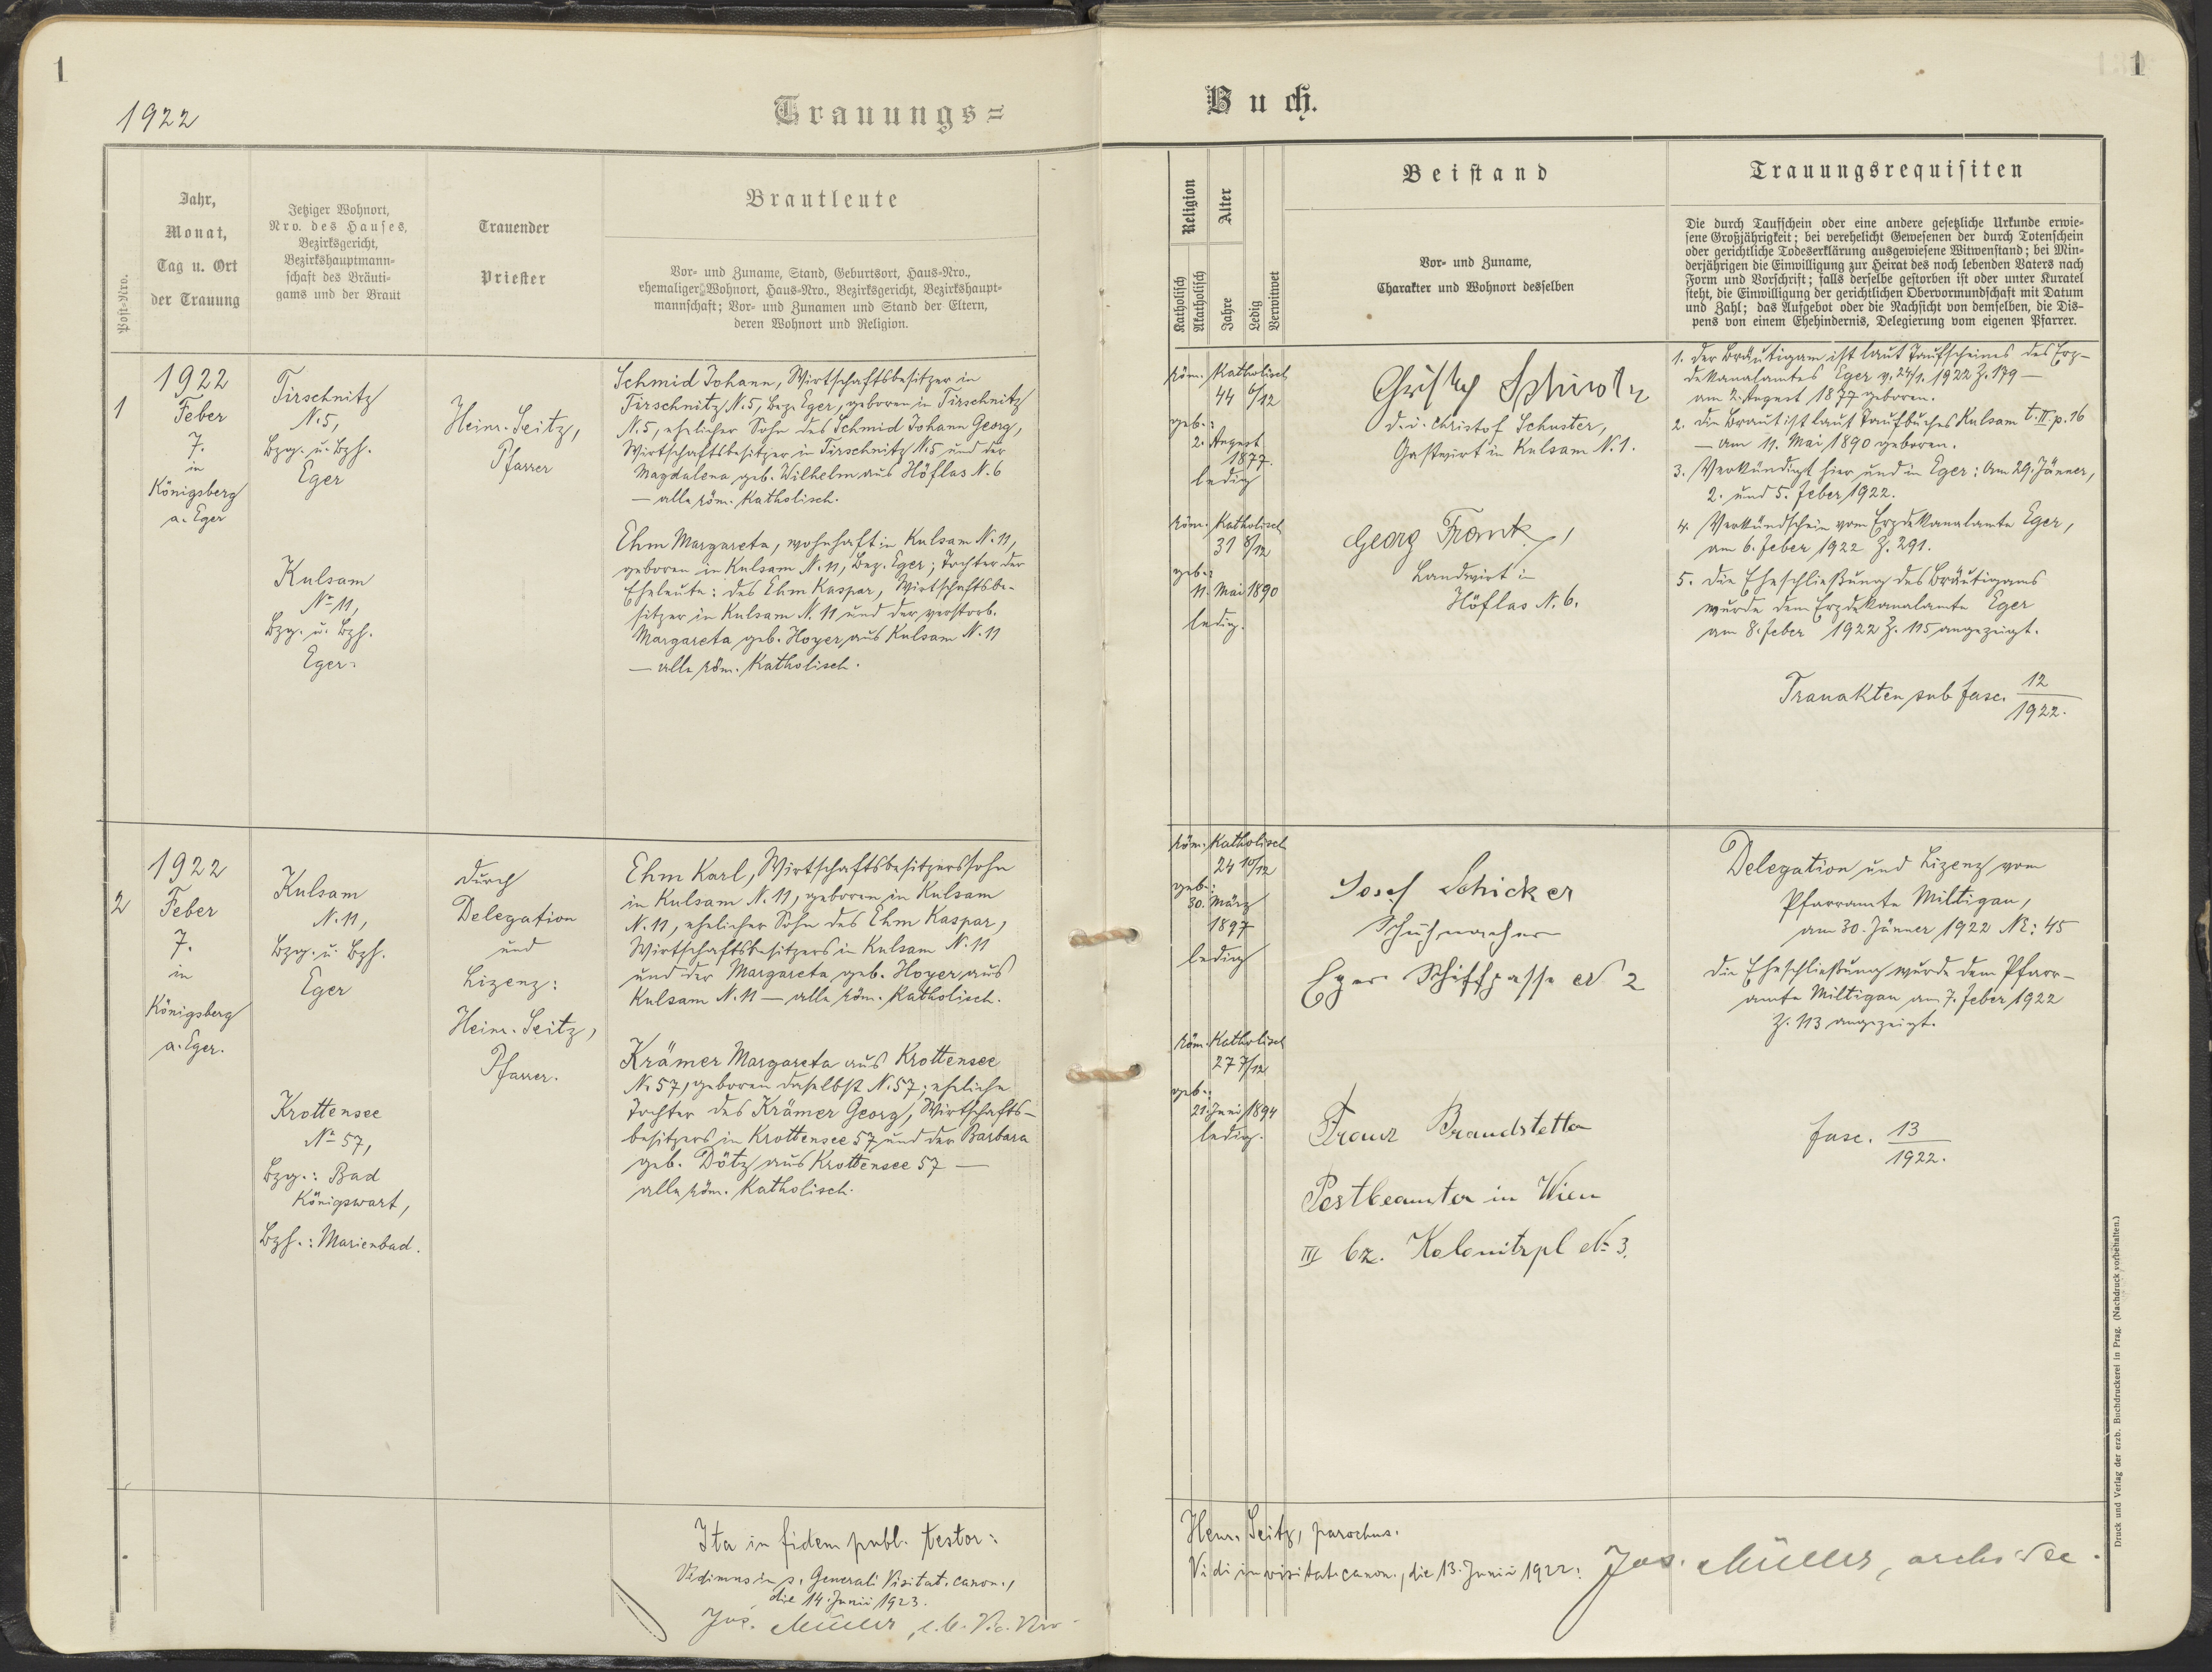 1
1922
Trauungs=
Post=Nro.
Jahr,
Monat,
Tag u. Ort
der Trauung
Jetziger Wohnort,
Nro. des Hauses,
Bezirksgericht,
Bezirkshauptmann=
schaft des Bräuti=
gams und der Braut
Trauender
Priester
Brautleute
Vor= und Zuname, Stand, Geburtsort, Haus=Nro.,
ehemaliger Wohnort, Haus=Nro., Bezirksgericht, Bezirkshaupt=
mannschaft; Vor= und Zunamen und Stand der Eltern,
deren Wohnort und Religion.
1
1922
Feber
7.
in
Königsberg
a. Eger
Tirschnitz
N. 5,
Bzg. u. Bzh.
Eger
Kulsam
No 11,
Bzg. u. Bzh.
Eger.
Heinr. Seitz,
Pfarrer
Schmid Johann, Wirtschaftsbesitzer in
Tirschnitz N. 5, Bez. Eger, geboren in Tirschnitz
N. 5, ehelicher Sohn des Schmid Johann Georg,
Wirtschaftsbesitzer in Tirschnitz N. 5 und der
Magdalena geb. Wilhelm aus Höflas N. 6
— alle röm. Katholisch.
Ehm Margareta, wohnhaft in Kulsam N. 11,
geboren in Kulsam N. 11, Bez. Eger; Tochter der
Eheleute: des Ehm Kaspar, Wirtschaftsbe-
sitzer in Kulsam N. 11 und der verstorb.
Margareta geb. Hoyer aus Kulsam N. 11
— alle röm. Katholisch.
2
1922
Feber
7.
in
Königsberg
a. Eger.
Kulsam
N. 11,
Bzg. u. Bzh.
Eger
Krottensee
No 57,
Bzg.: Bad
Königswart,
Bzh.: Marienbad.
durch
Delegation
und
Lizenz:
Heinr. Seitz,
Pfarrer.
Ehm Karl, Wirtschaftsbesitzerssohn
in Kulsam N. 11, geboren in Kulsam
N. 11, ehelicher Sohn des Ehm Kaspar,
Wirtschaftsbesitzers in Kulsam N. 11
und der Margareta geb. Hoyer aus
Kulsam N. 11 — alle röm. Katholisch.
Krämer Margareta aus Krottensee
No 57, geboren daselbst N. 57; eheliche
Tochter des Krämer Georg, Wirtschafts-
besitzers in Krottensee 57 und der Barbara
geb. Dötz aus Krottensee 57 —
alle röm. Katholisch.
Ita in fidem publ. testor:
Vidimus in s. Generali Visitat. canon.,
die 14. Junii 1923.
Jos. Müller,
1
Buch.
Religion
Katholisch
Akatholisch
Alter
Jahre
Ledig
Verwitwet
Beistand
Vor= und Zuname,
Charakter und Wohnort desselben
Trauungsrequisiten
Die durch Taufschein oder eine andere gesetzliche Urkunde erwie=
sene Großjährigkeit; bei verehelicht Gewesenen der durch Totenschein
oder gerichtliche Todeserklärung ausgewiesene Witwenstand; bei Min=
derjährigen die Einwilligung zur Heirat des noch lebenden Vaters nach
Form und Vorschrift; falls derselbe gestorben ist oder unter Kuratel
steht, die Einwilligung der gerichtlichen Obervormundschaft mit Datum
und Zahl; das Aufgebot oder die Nachsicht von demselben, die Dis=
pens von einem Ehehindernis, Delegierung vom eigenen Pfarrer.
röm. Katholisch
44 6/12
geb.:
2. August
1877.
ledig
röm. Katholisch
31 8/12
geb.:
11. Mai 1890
ledig.
d. i. Christof Schuster,
Gastwirt in Kulsam N. 1.
Georg Frank,
Landwirt in
Höflas N. 6.
1. Der Bräutigam ist laut Taufscheines des Erz-
dekanalamtes Eger v. 24/1. 1922 Z. 179 —
am 2. August 1877 geboren.
2. Die Braut ist laut Taufbuches Kulsam t. II. p. 16
— am 11. Mai 1890 geboren.
3. Verkündigt hier und in Eger: Am 29. Jänner,
2. und 5. Feber 1922.
4. Verkündschein vom Erzdekanalamte Eger,
am 6. Feber 1922 Z. 291.
5. Die Eheschließung des Bräutigams
wurde dem Erzdekanalamte Eger
am 8. Feber 1922 Z. 115 angezeigt.
Trauakten sub fasc. 12/1922.
röm. Katholisch
24 10/12
geb.:
30. März
1897
ledig
röm. Katholisch
27 7/12
geb.:
21. Juni 1894
ledig.
Josef Schicker
Schuhmacher
Eger Schiffgasse No 2
Franz Brandstetter
Postbeamter in Wien
III bz. Kolonitzpl No 3.
Delegation und Lizenz vom
Pfarramte Miltigau,
am 30. Jänner 1922 Nr: 45
Die Eheschließung wurde dem Pfarr-
amte Miltigau am 7. Feber 1922
Z. 113 angezeigt.
fasc. 13/1922.
Henr. Seitz, parochus.
Vidi in visitat. canon., die 13. Junii 1922: Jos. Müller,
Druck und Verlag der erzb. Buchdruckerei in Prag. (Nachdruck vorbehalten.)